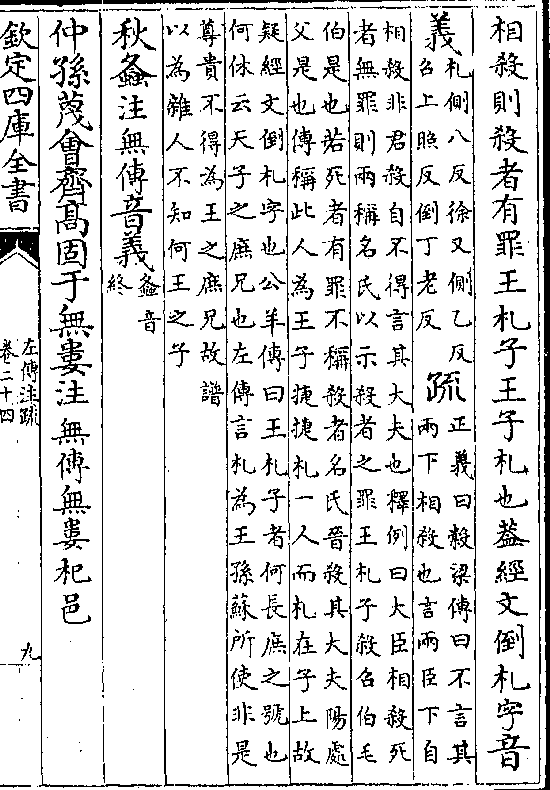 相殺則殺者有罪王札子王子札也葢經文倒札字音
義札側八反徐又側乙反
召上照反倒丁老反疏正義曰榖梁傳曰不言其
兩下相殺也言兩臣下自
相殺非君殺自不得言其大夫也釋例曰大臣相殺死
者無罪則兩稱名氏以示殺者之罪王札子殺召伯毛
伯是也若死者有罪不稱殺者名氏晉殺其大夫陽處
父是也傳稱此人為王子捷捷札一人而札在子上故
疑經文倒札字也公羊傳曰王札子者何長庶之號也
何休云天子之庶兄也左傳言札為王孫蘇所使非是
尊貴不得為王之庶兄故譜
以為雜人不知何王之子
秋螽注無傳音義螽音
終
仲孫蔑會齊高固于無婁注無傳無婁杞邑
欽定四庫全書
左傳注疏
卷二十四
九